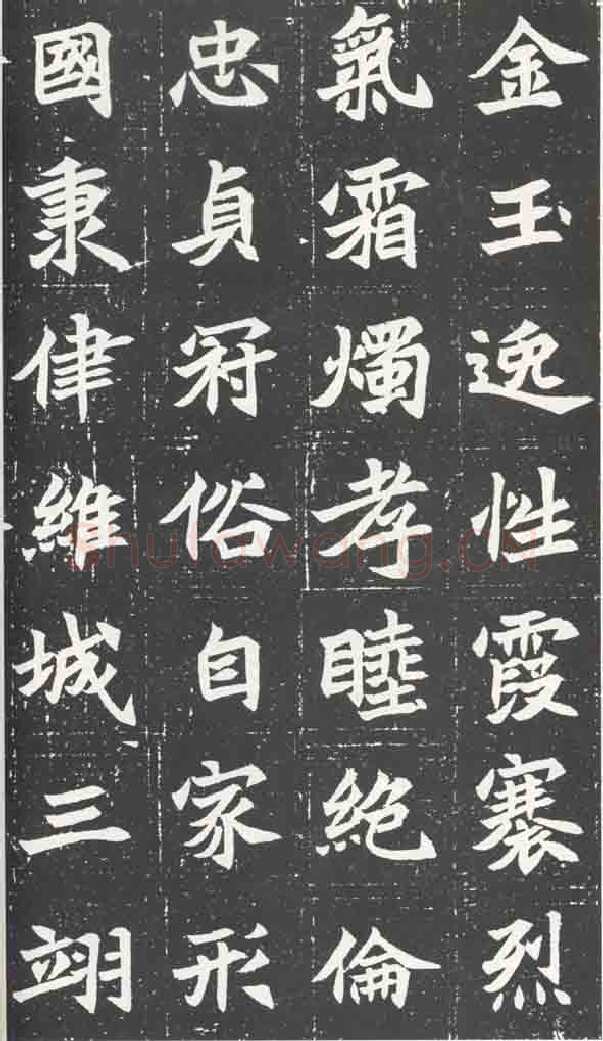 金玉逸性霞褰烈
氣霜燭孝睦絶倫
忠貞冠俗自家形
國秉律維城三翊
Shufawang.CN